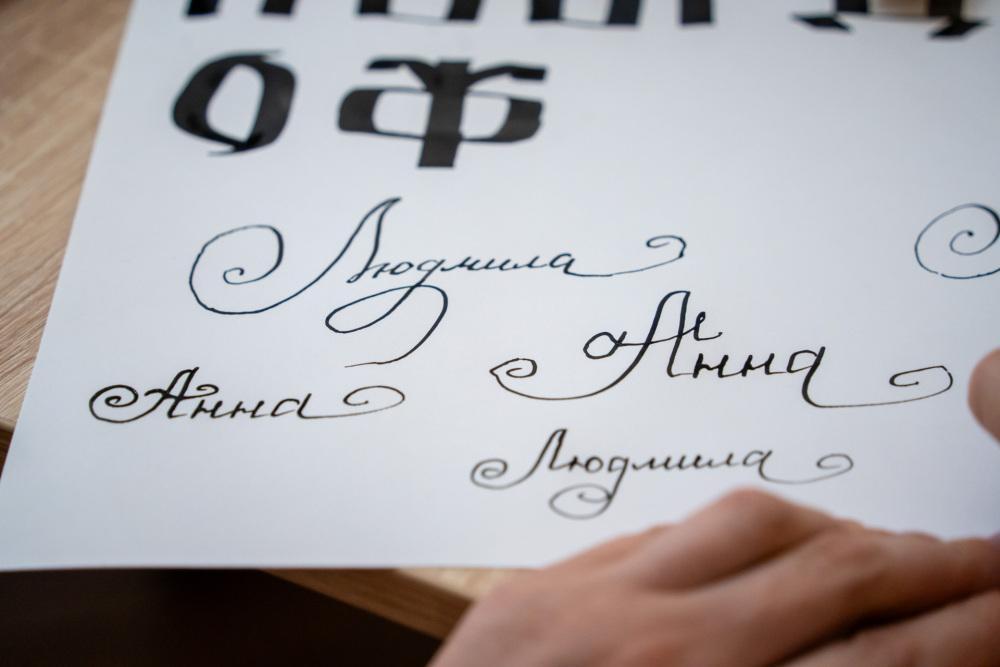 О Ф
Людмила
Анна
Анна
Людмила